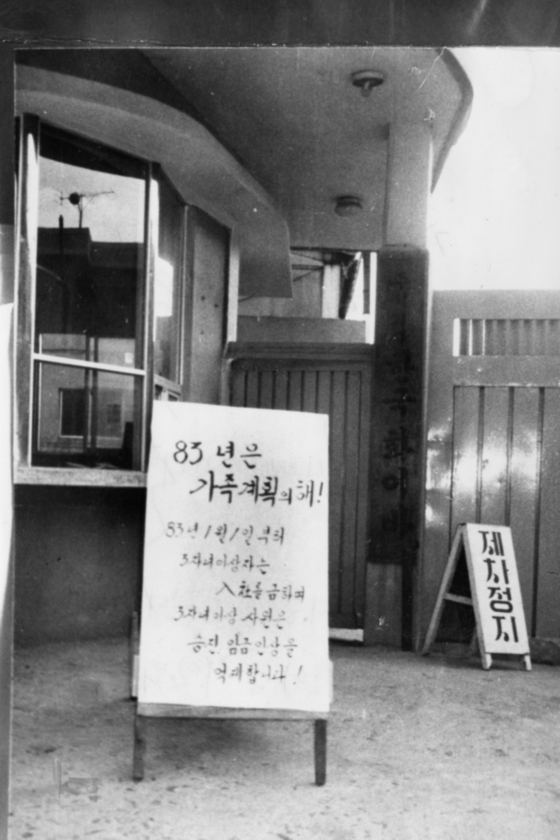 83 년은
가족계획의 해!
83년 1월 1일 부터
3자녀이상자는
入社를 금하며
3자녀이상 사원은
승진 임금인상을
억제합니다!
제차정지